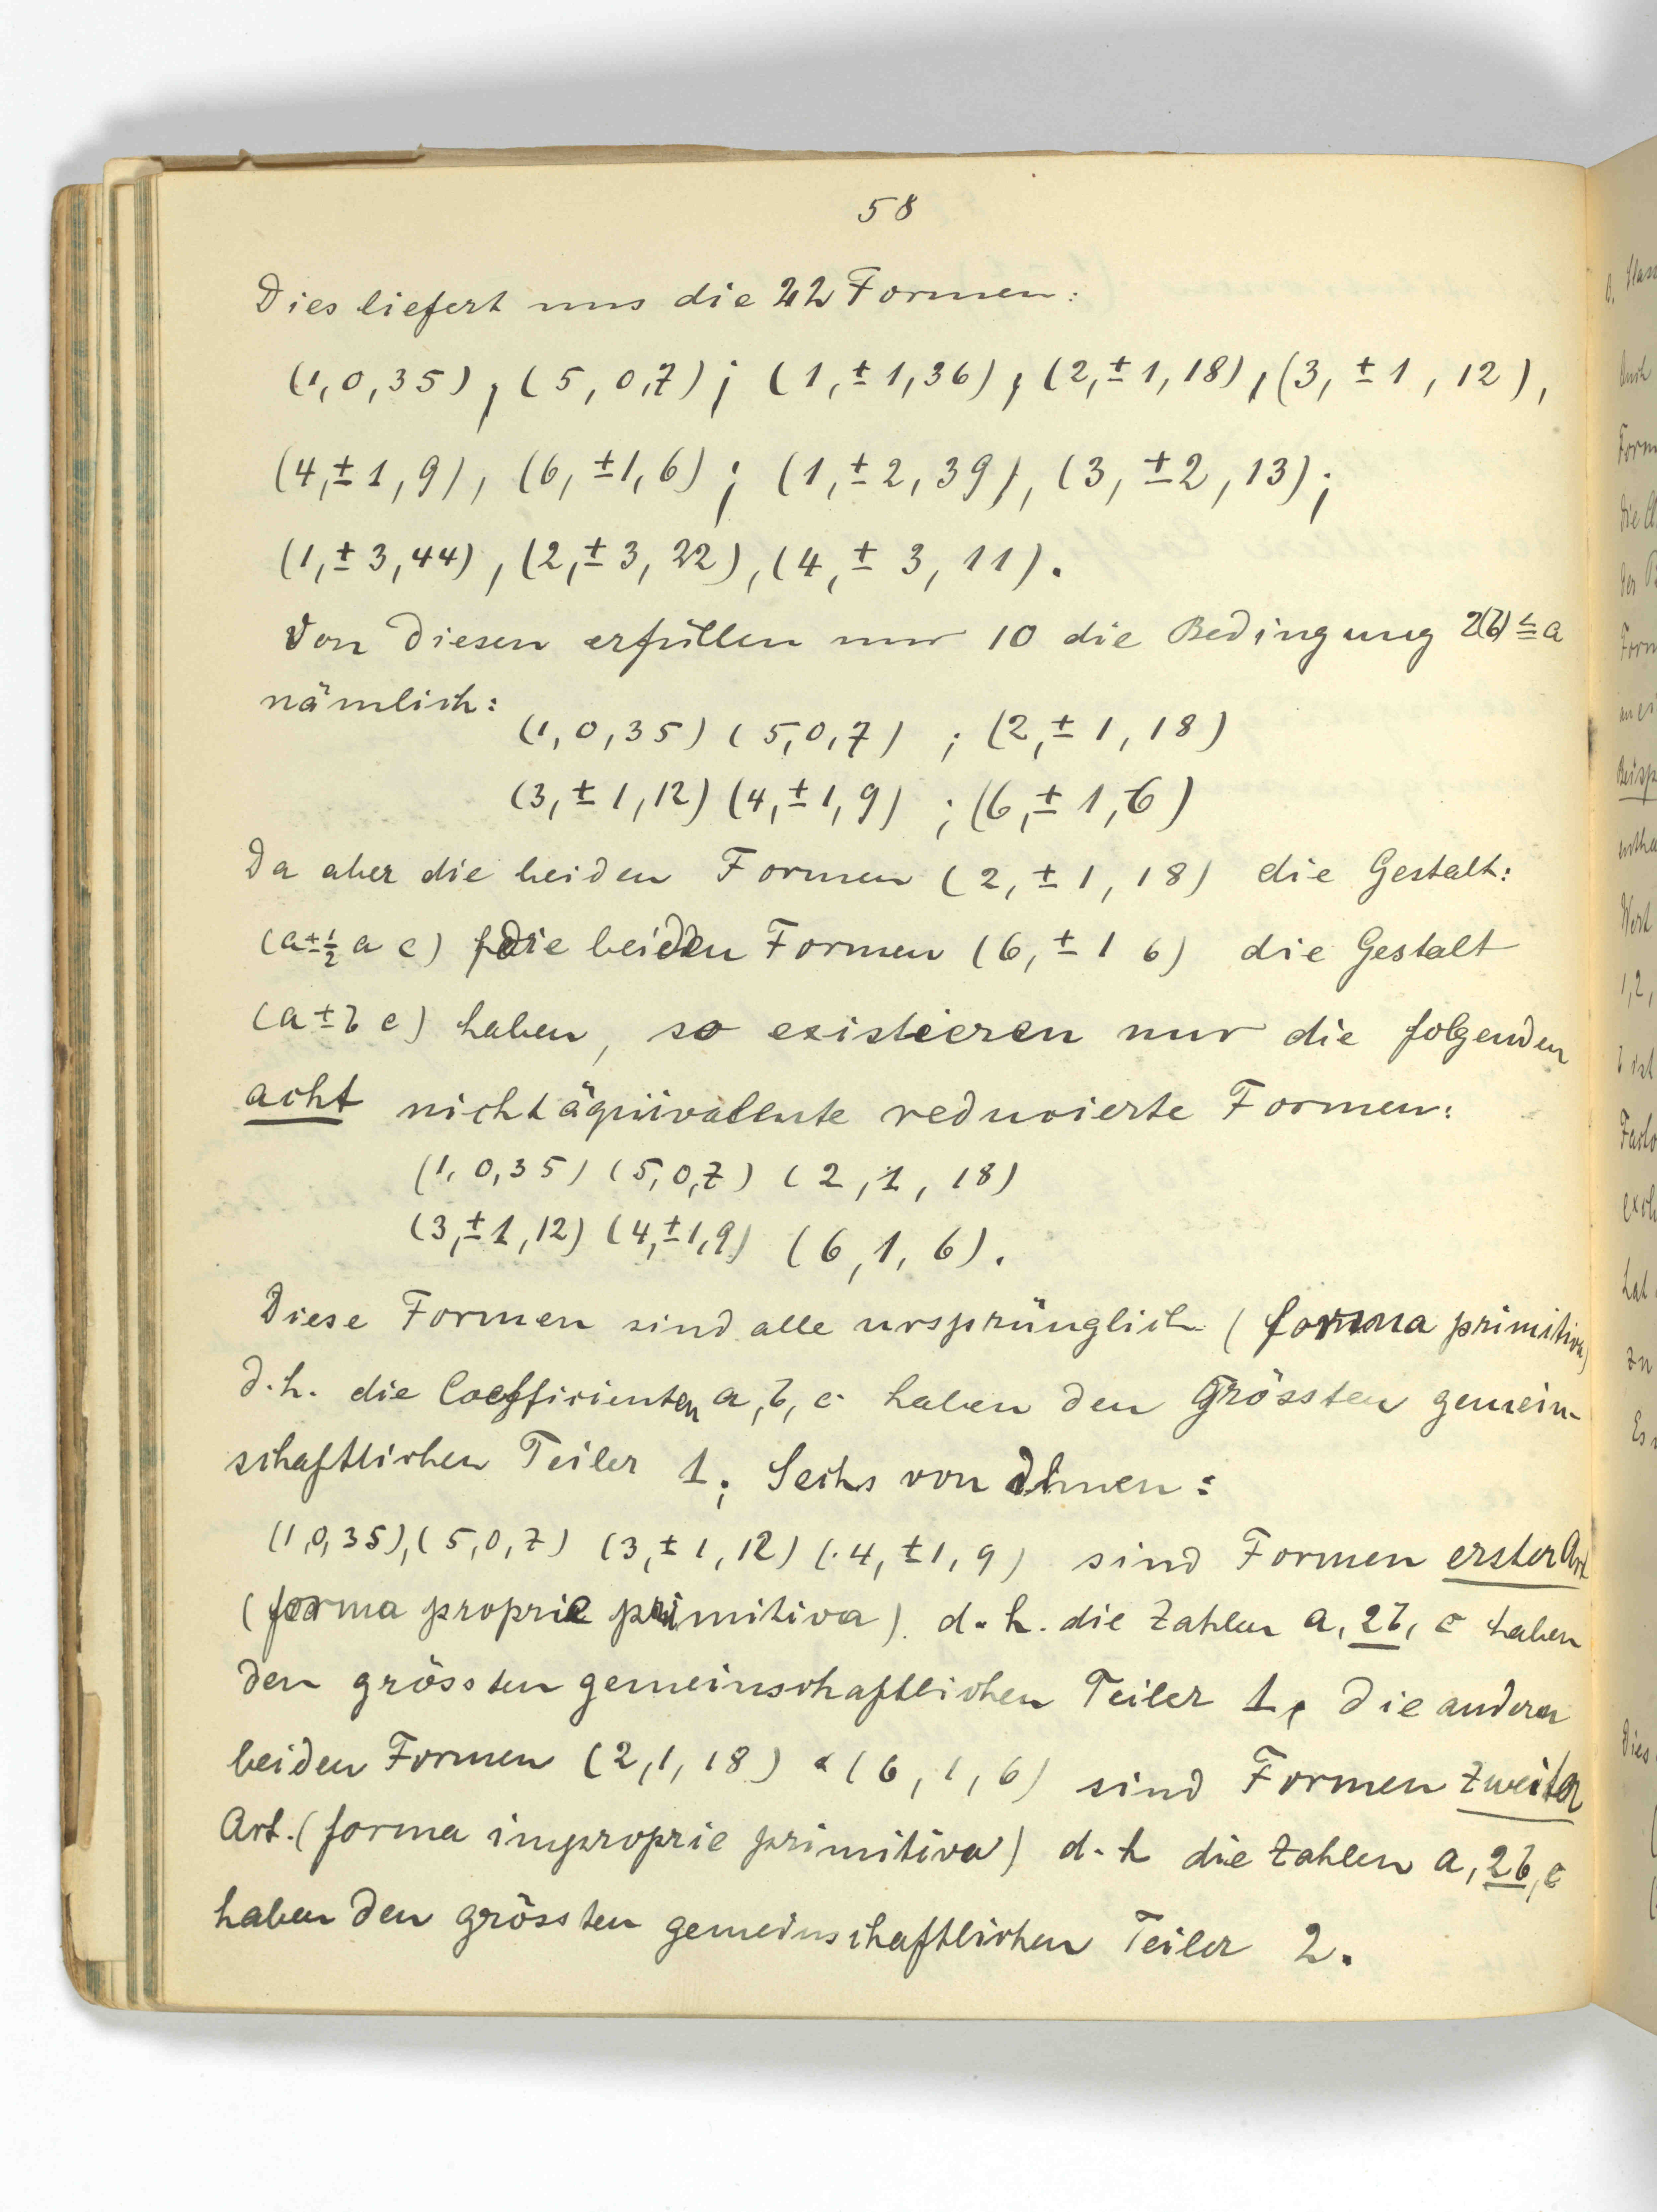 58
Dies liefert uns die 22 Formen:
(1,0,35), (5,0,7); (1,±1,36), (2,±1,18), (3,±1,12),
(4,±1,9), (6,±1,6); (1,±2,39), (3,±2,13);
(1,±3,44), (2,±3,22), (4,±3,11).
Von diesen erfüllen nur 10 die Bedingung 2(b) ≦ a
nämlich:
(1,0,35) (5,0,7) ; (2,±1,18)
(3,±1,12) (4,±1,9) ; (6,±1,6)
Da aber die beiden Formen (2,±1,18) die Gestalt:
(a ± ½ a c) die beiden Formen (6,±1 6) die Gestalt
(a ± b c) haben, so existieren nur die folgenden
acht nichtäquivalente reducierte Formen:
(1,0,35) (5,0,7) (2,1,18)
(3,±1,12) (4,±1,9) (6,1,6).
Diese Formen sind alle ursprünglich (forma primitiva)
d.h. die Coefficienten a, b, c haben den Grössten gemein-
schaftlichen Teiler 1; Sechs von Ihnen:
(1,0,35), (5,0,7) (3,±1,12) (4,±1,9) sind Formen erster Art
(forma proprie primitiva). d.h. die Zahlen a, 2b, c haben
den grössten gemeinschaftlichen Teiler 1, die anderen
beiden Formen (2,1,18) (6,1,6) sind Formen zweiter
Art. (forma improprie primitiva) d.h die Zahlen a, 2b, c
haben den grössten gemeinschaftlichen Teiler 2.